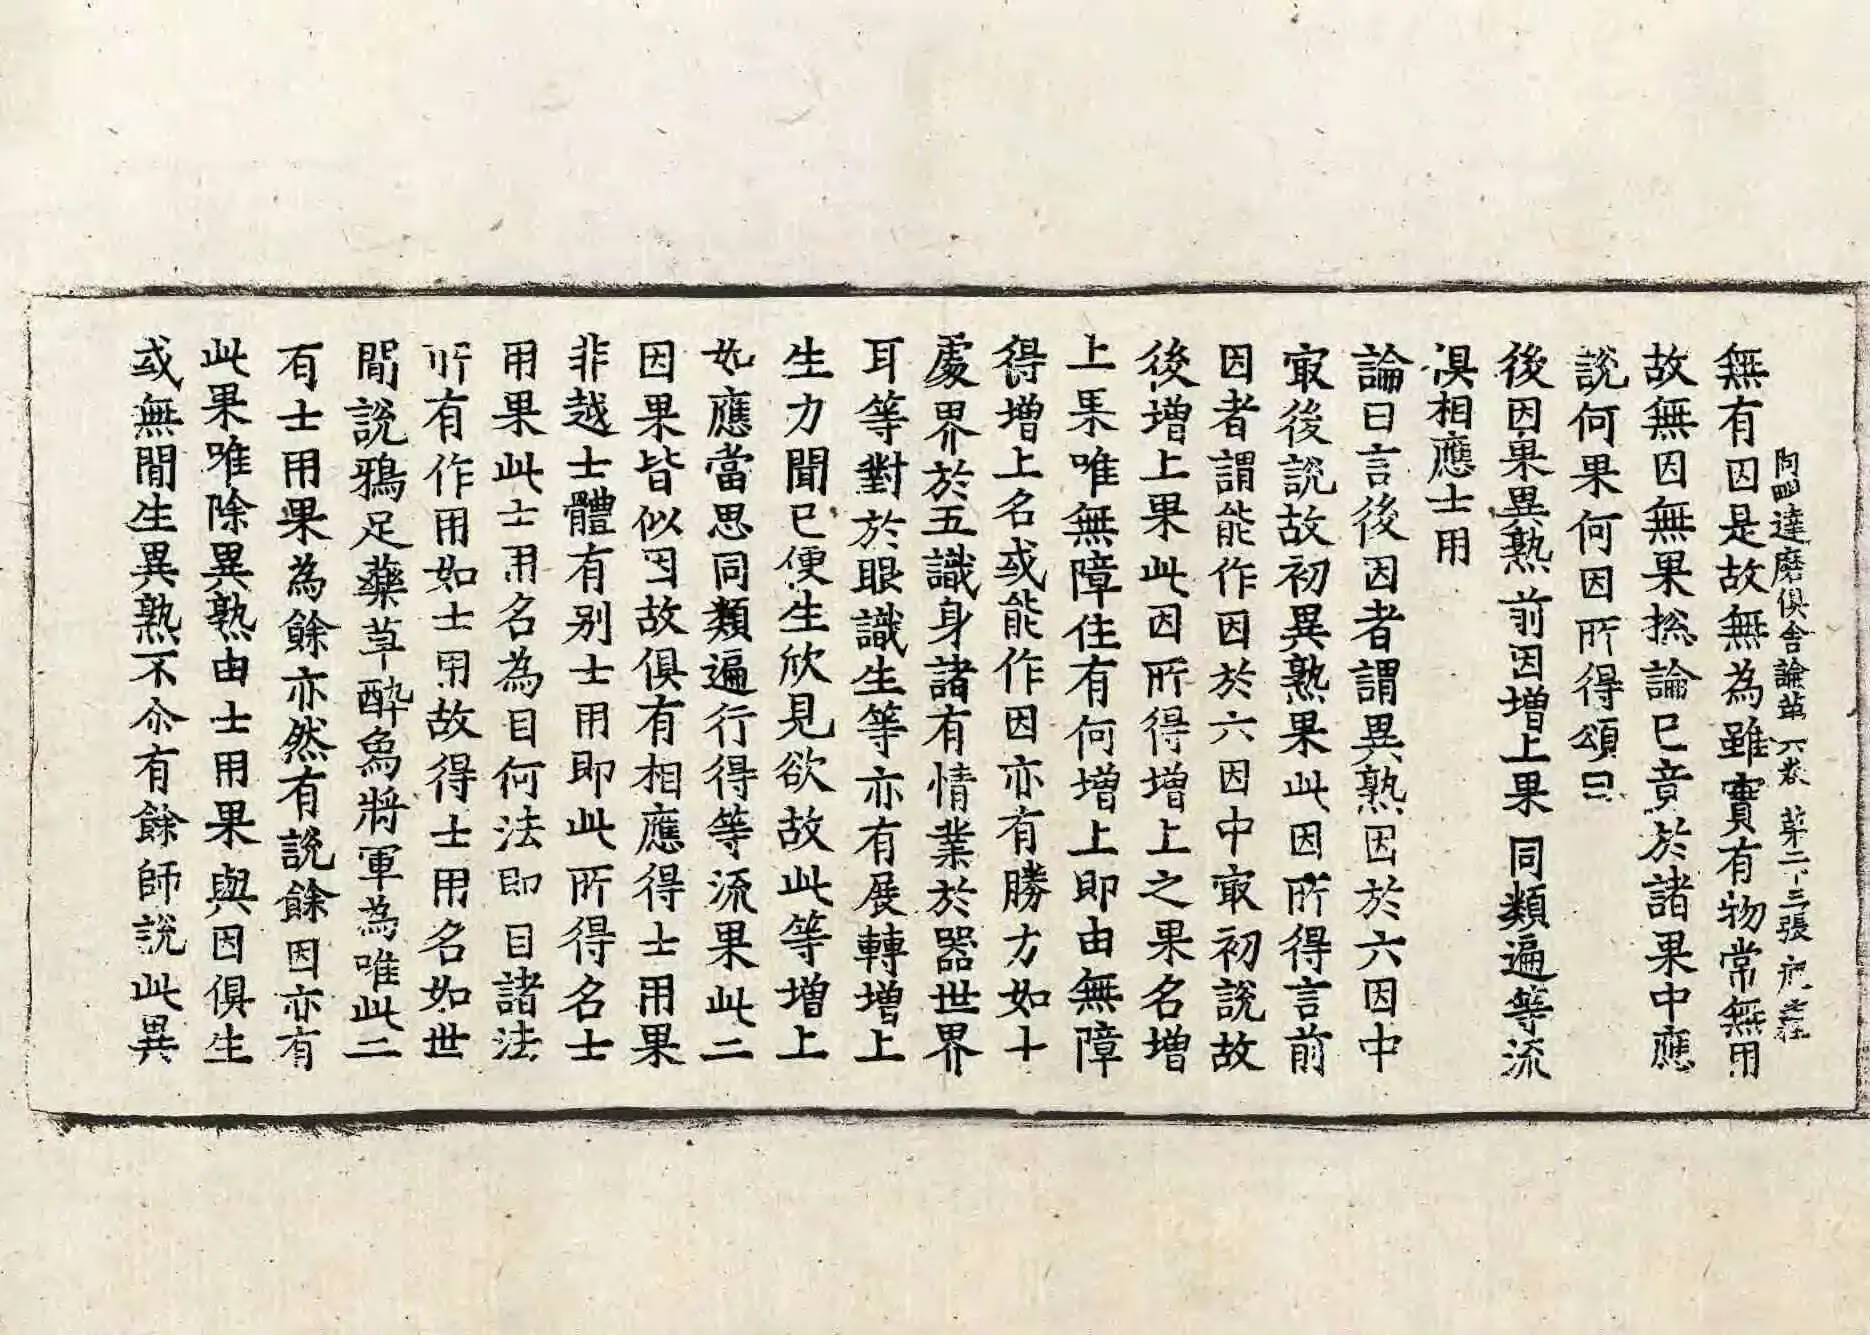 阿毗達磨俱舍論第六卷 第二十三張
無有因是故無為雖實有物常無用
故無因無果揔論已竟於諸果中應
說何果何因所得頌曰
後因果異熟 前因增上果 同類遍等流
俱相應士用
論曰言後因者謂異熟因於六因中
㝡後說故初異熟果此因所得言前
因者謂能作因於六因中㝡初說故
後增上果此因所得增上之果名增
上果唯無障住有何增上即由無障
得增上名或能作因亦有勝力如十
處界於五識身諸有情業於器世界
耳等對於眼識生等亦有展轉增上
生力聞已便生欣見欲故此等增上
如應當思同類遍行得等流果此二
因果皆似因故俱有相應得士用果
非越士體有別士用即此所得名士
用果此士用名為目何法即目諸法
所有作用如士用故得士用名如世
間說鴉足藥草醉象將軍為唯此二
有士用果為餘亦然有說餘因亦有
此果唯除異熟由士用果與因俱生
或無間生異熟不尒有餘師說此異